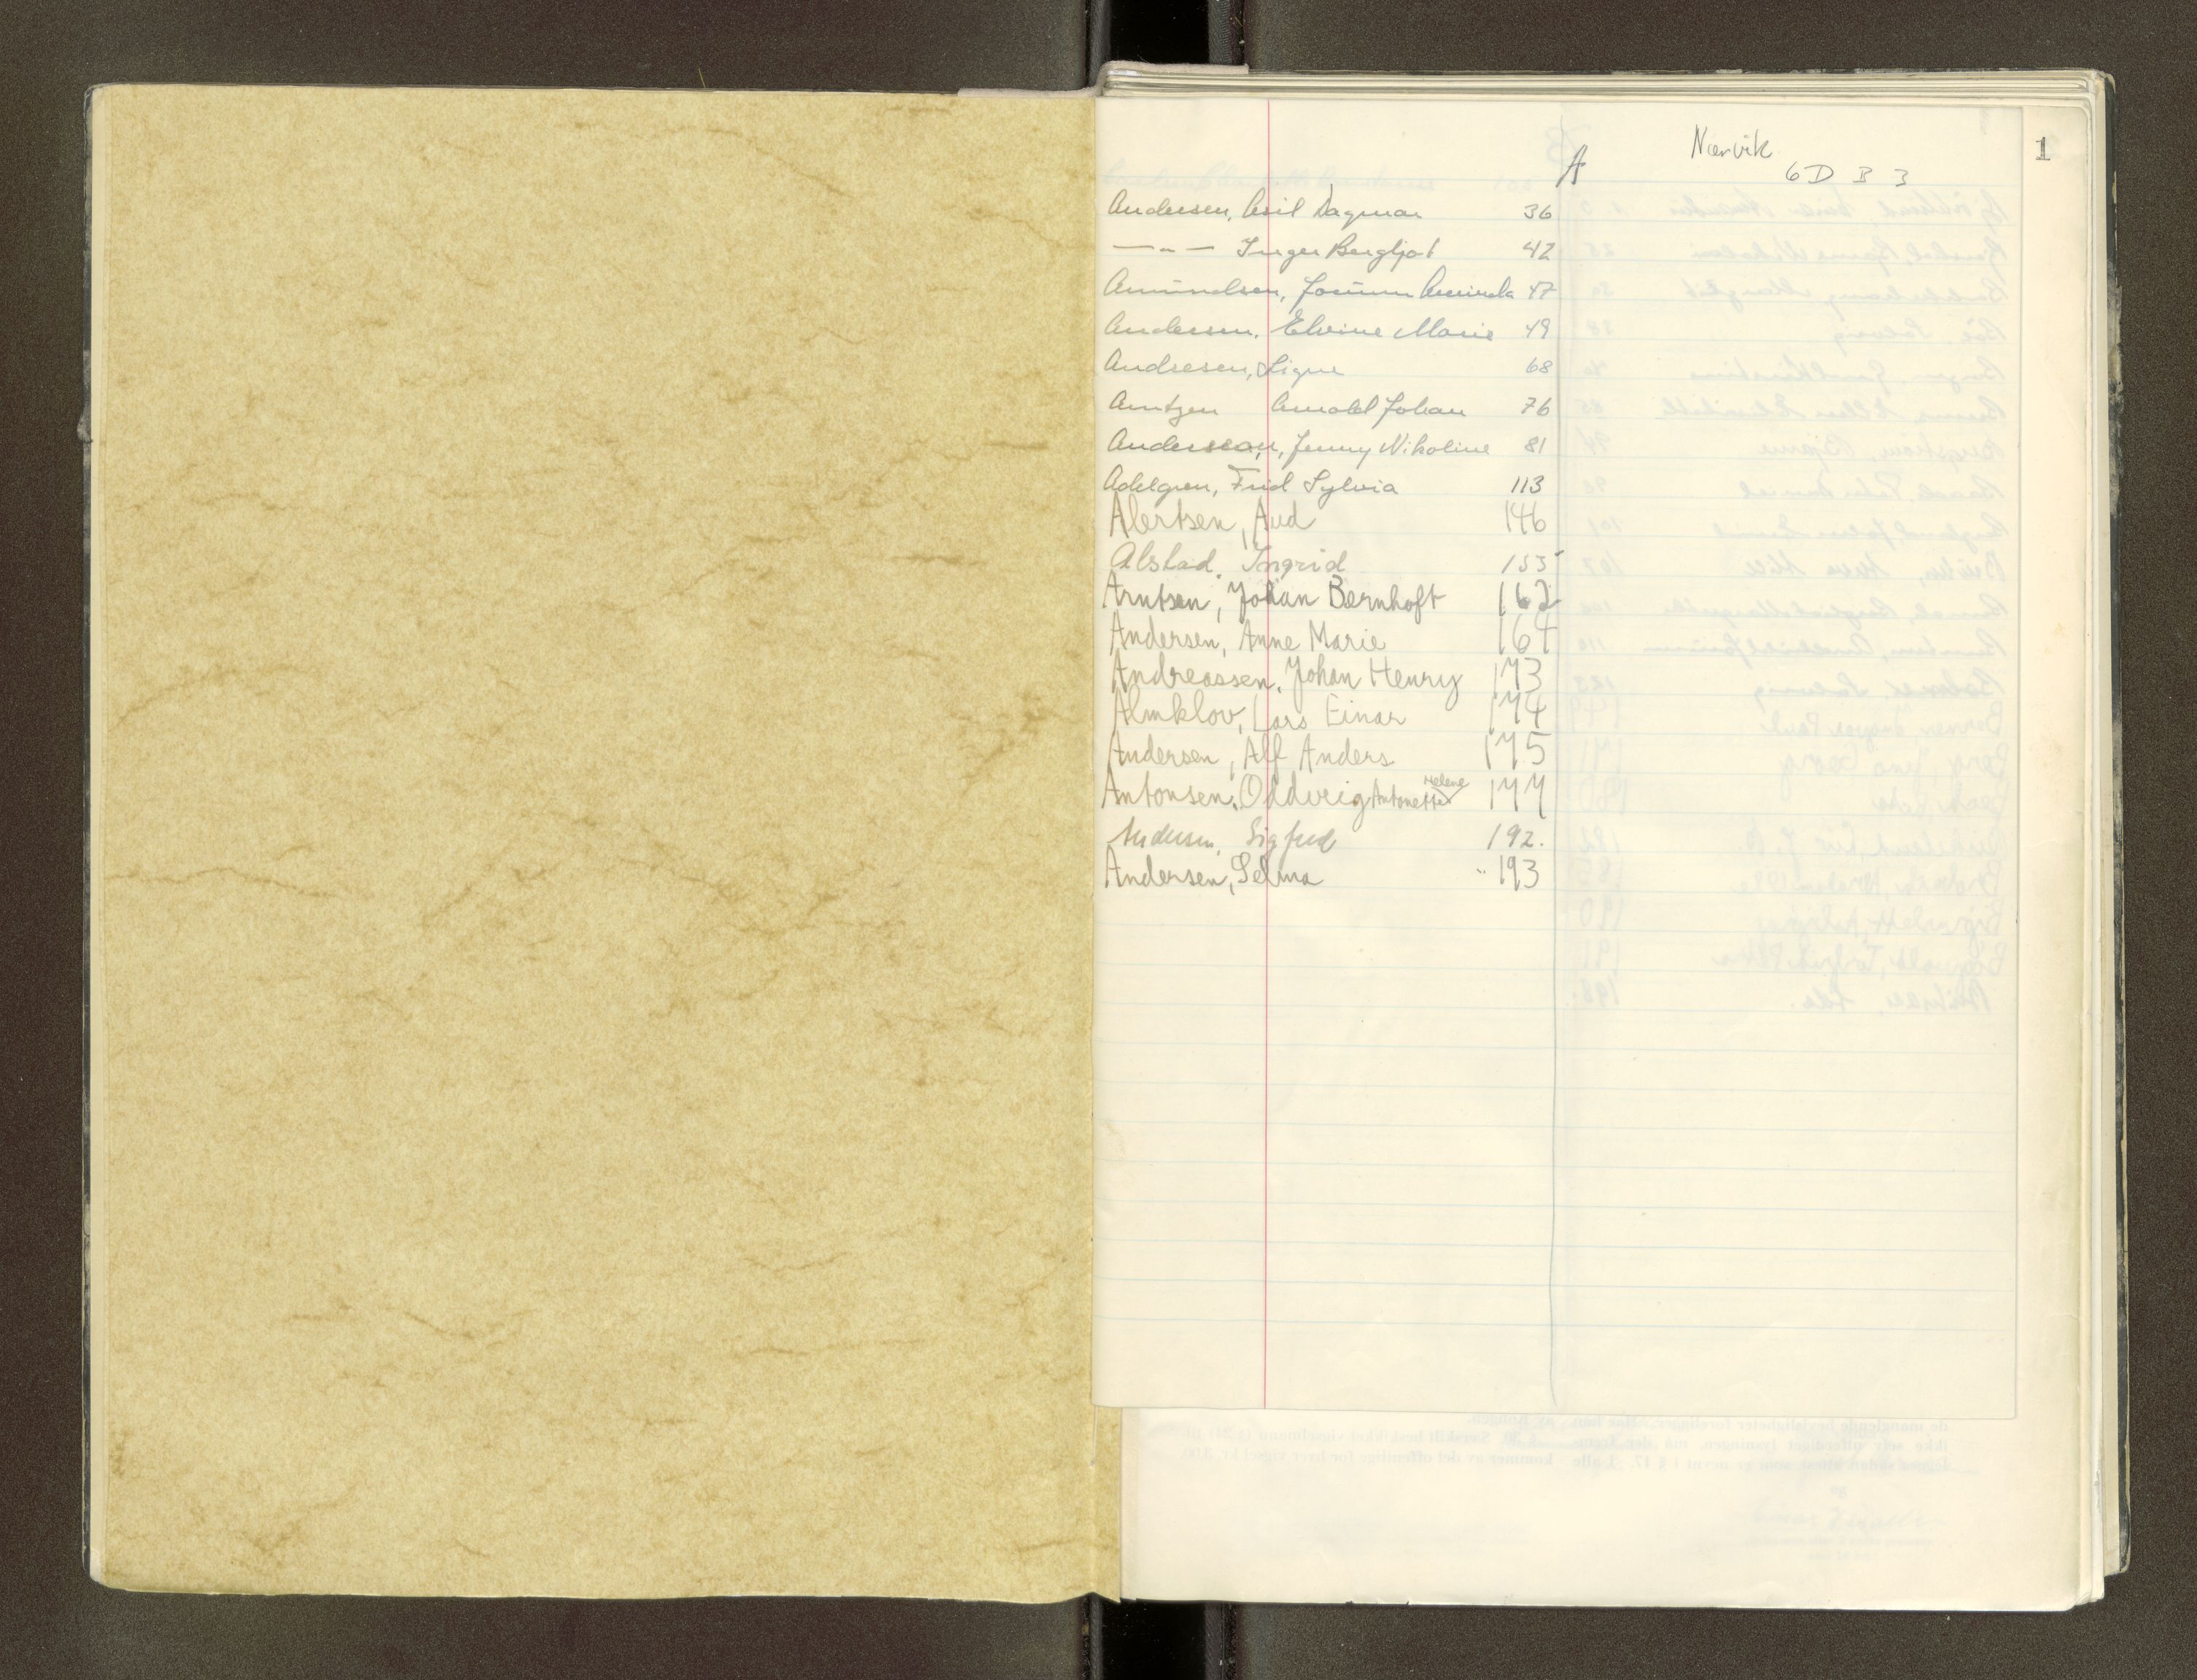 1
Narvik
6 D B 3
A
Andersen, Asil Dagmar 36
—"— Inger Bergljot 42
Amundsen, Jorunn Aminda 47
Andersen, Elvine Marie 49
Andresen, Signe 68
Arntzen Arnold Johan 76
Anderssen, Jenny Nikoline 81
Adelgren, Frid Sylvia 113
Albertsen, Aud 146
Alstad, Ingrid 155
Arntsen, Johan Bernhoft 162
Andersen, Anne Marie 164
Andreassen, Johan Henry 173
Almklov, Lars Einar 174
Andersen, Alf Anders 175
Antonsen, Oddveig Antonette Helene 177
Andersen, Sigfred 192.
Andersen, Selma 193